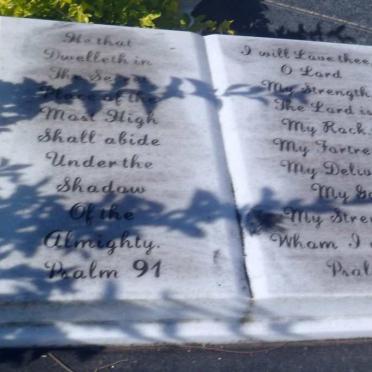 He that
Dwelleth in
The Secret
Place of the
Most High
Shall abide
Under the
Shadow
Of the
Almighty.
Psalm 91
I will Love thee
O Lord
My Strength
The Lord is
My Rock
My Fortre
My Deliv
My Go
My Stren
Whom I
Psal